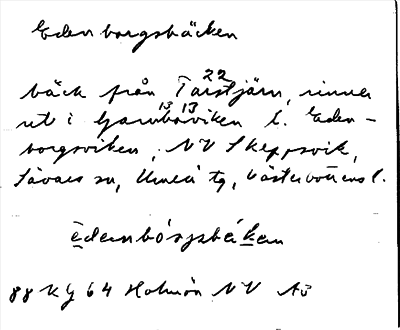 Edenborgsbäcken
22
bäck från Tarstjärn, rinner
13 13
ut i Gamboviken l. Eden-
borgsviken, NV Skeppsvik,
Sävars sn, Umeå tg, Västerbottens l.
èdambórjsbäkan
88 Kg 64 Holmön NV AÖ